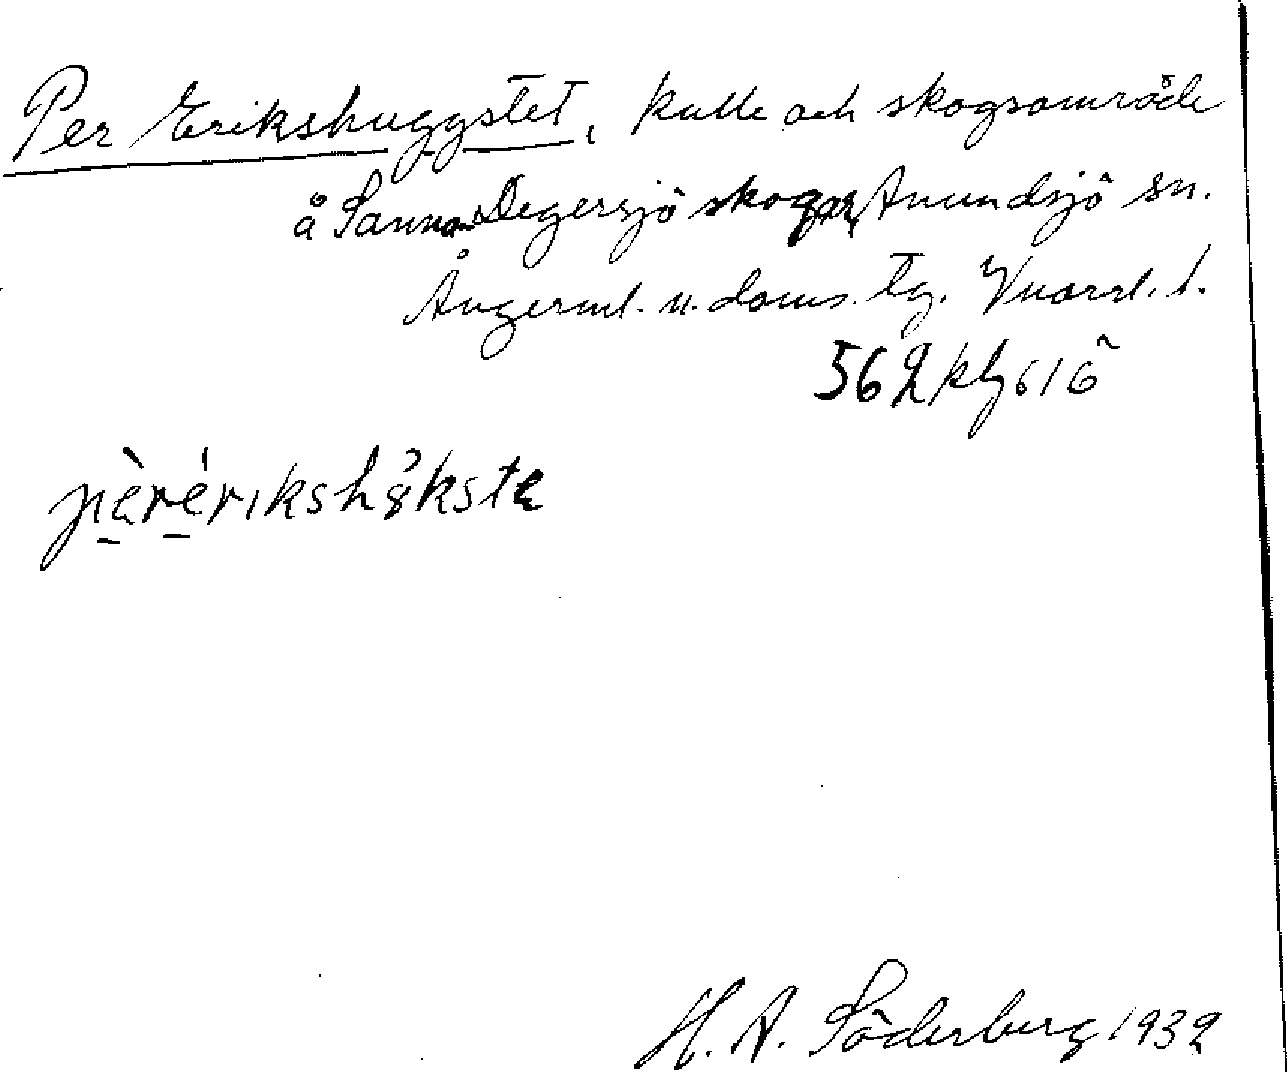 Per Erikshuggstet, kulle och skogsområde
å Sanna Degersjö skogar, Anundsjö sn.
Ångerml. n. doms. tg. Vnorrl. l.
562
pèrérikshåkste
H. A. Söderberg 1932